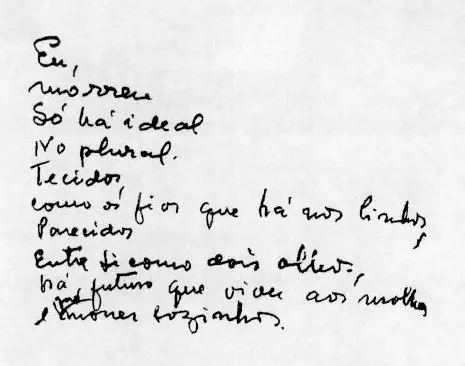 Eu,
morreu
Só há ideal
No plural.
Tecidos,
como os fios que há nos linhos,
Parecidos
Entre si como dois olhos,
há futuro que viver aos molhos
e morrer sozinhos.